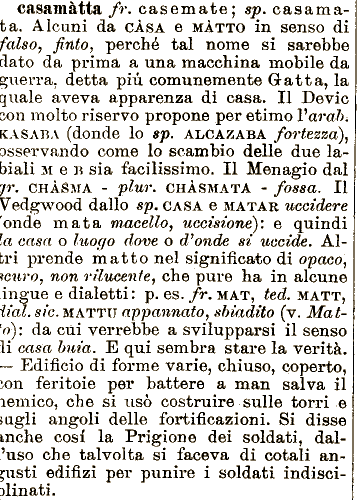 casamàtta fr. casemate; sp. casama-
ta. Alcuni da CÀSA e MÀTTO in senso di
falso, finto, perché tal nome si sarebbe
dato da prima a una macchina mobile da
guerra, detta piú comunemente Gatta, la
quale aveva apparenza di casa. Il Devic
con molto riservo propone per etimo l'arab.
KASABA (donde lo sp. ALCAZABA fortezza),
osservando come lo scambio delle due la-
biali M e B sia facilissimo. Il Menagio dal
gr. CHÀSMA - plur. CHÀSMATA - fossa. Il
Vedgwood dallo sp. CASA e MATAR uccidere
(onde mata macello, uccisione): e quindi
la casa o luogo dove o d'onde si uccide. Al-
tri prende matto nel significato di opaco,
scuro, non rilucente, che pure ha in alcune
lingue e dialetti: p. es. fr. MAT, ted. MATT,
dial. sic. MATTU appannato, sbiadito (v. Mat-
to): da cui verrebbe a svilupparsi il senso
di casa buia. E qui sembra stare la verità.
— Edificio di forme varie, chiuso, coperto,
con feritoie per battere a man salva il
nemico, che si usò costruire sulle torri e
sugli angoli delle fortificazioni. Si disse
anche cosí la Prigione dei soldati, dal-
l'uso che talvolta si faceva di cotali an-
gusti edifizi per punire i soldati indisci-
plinati.